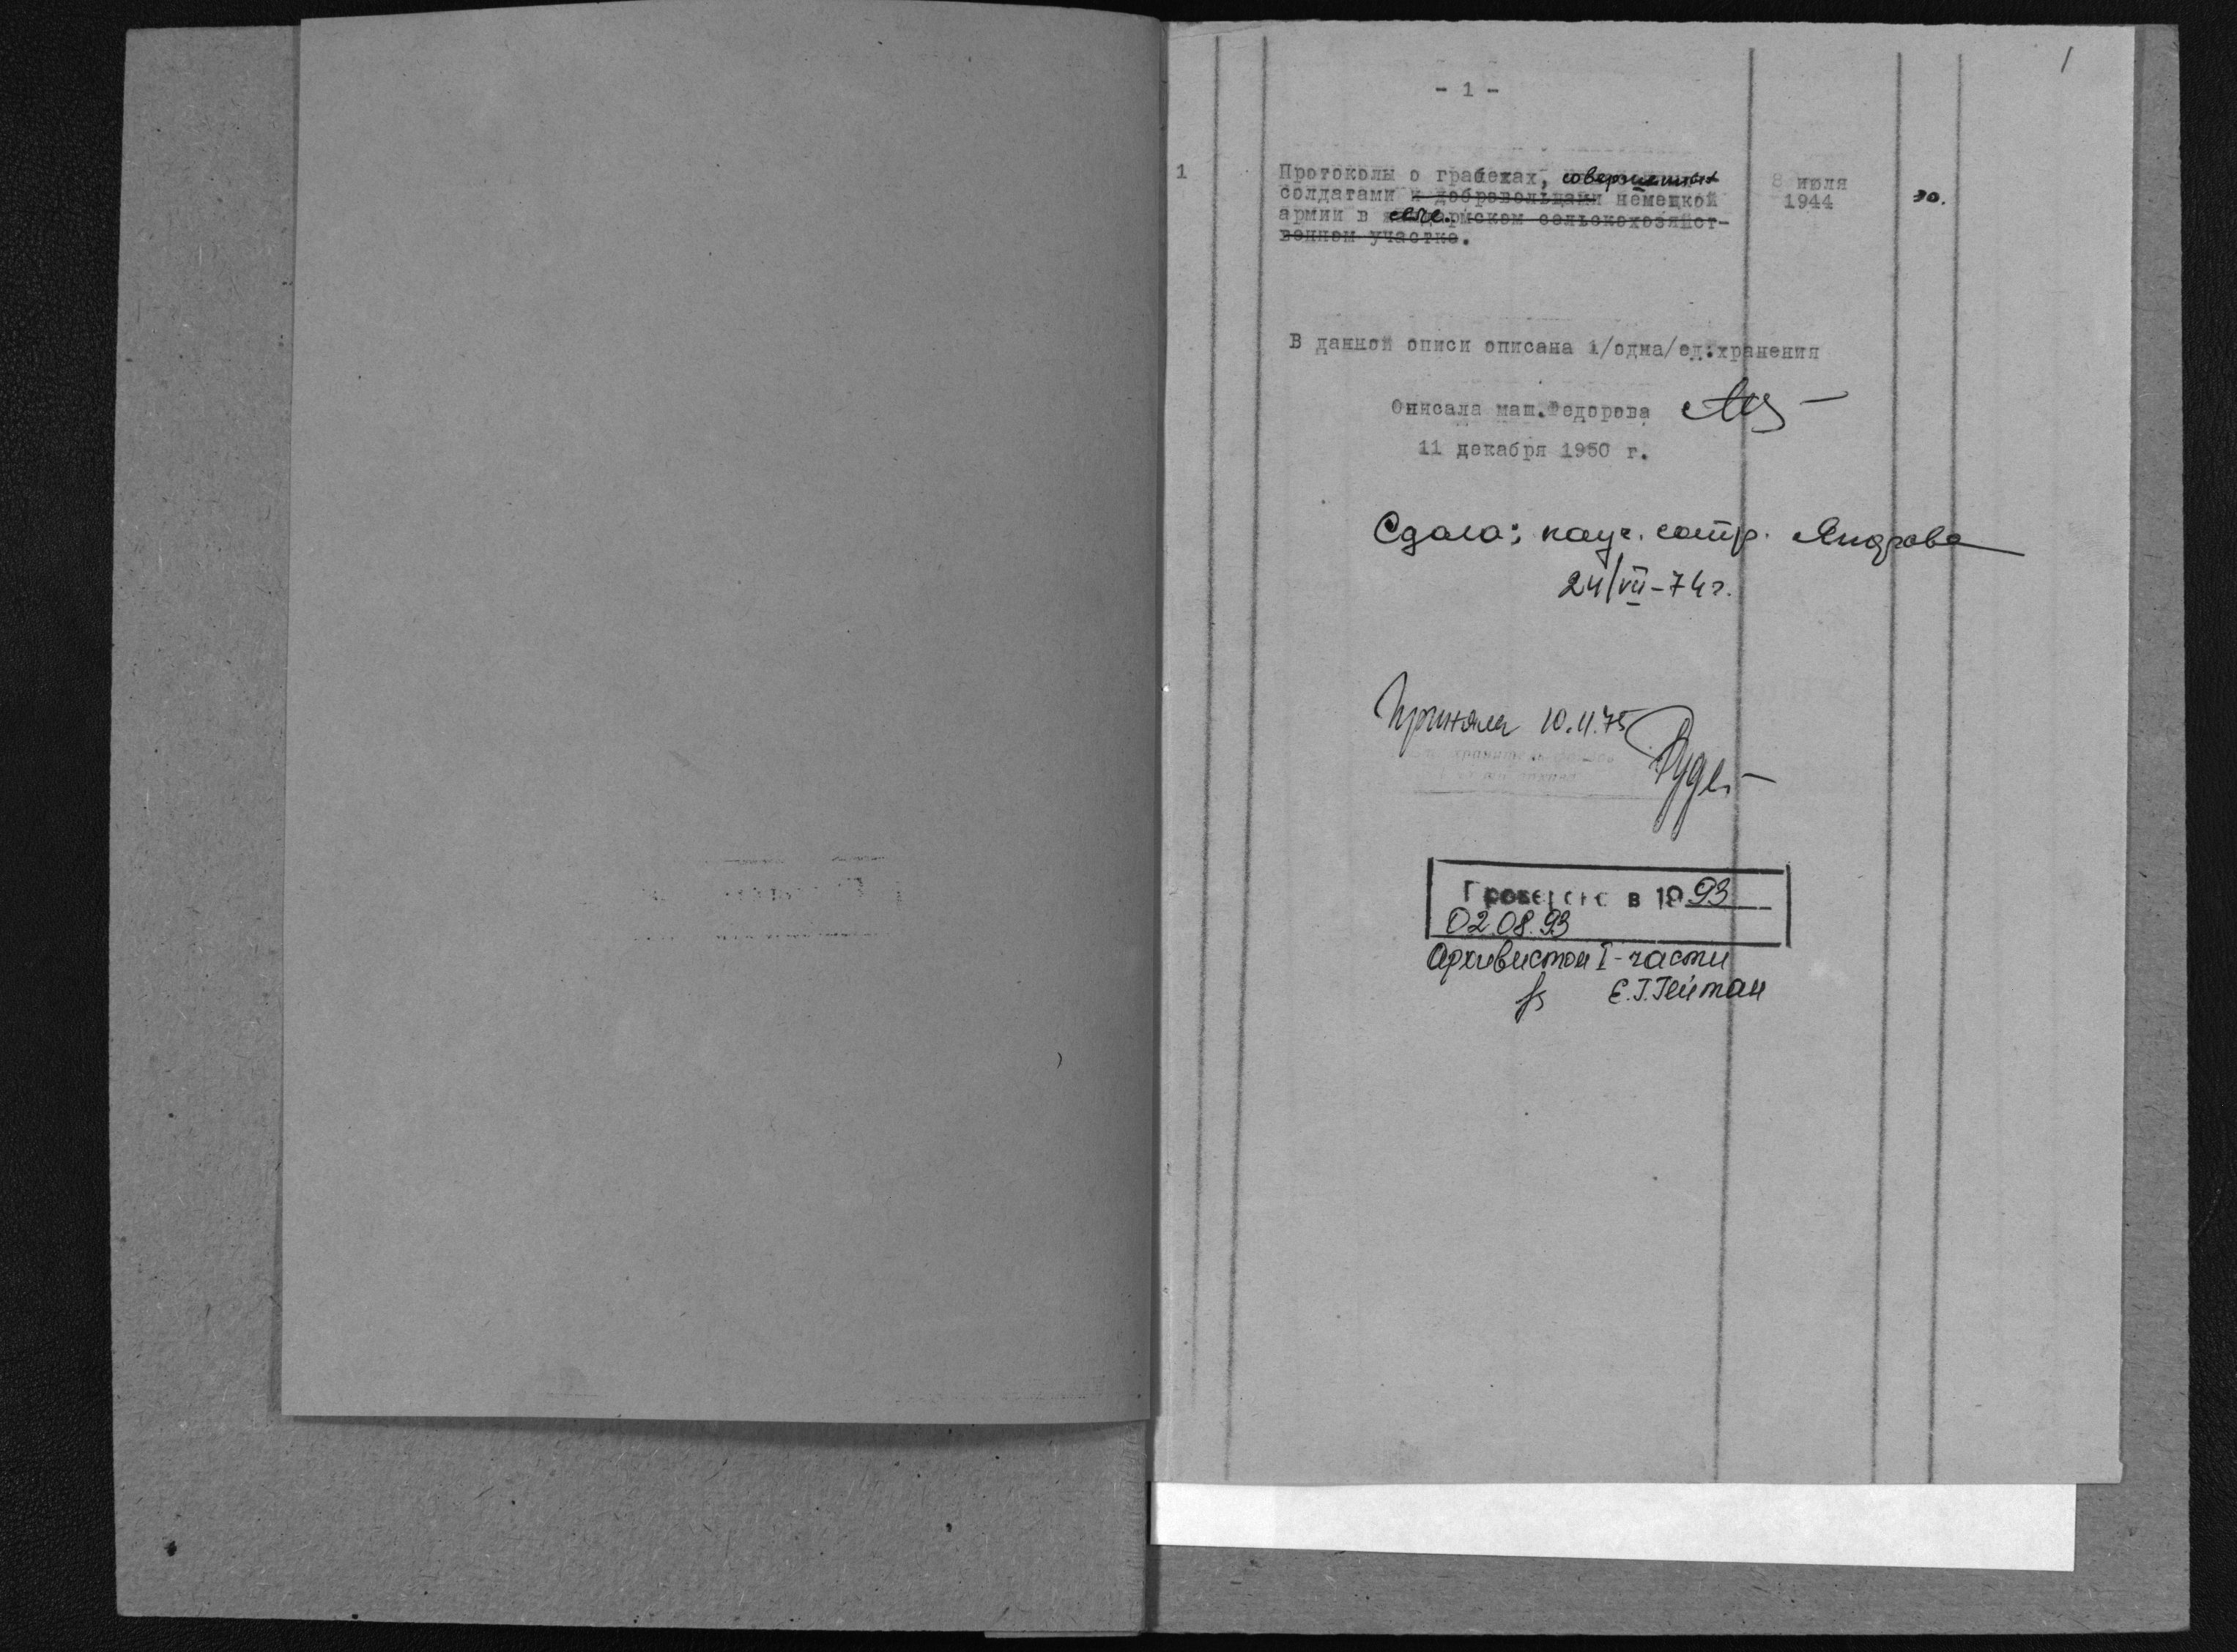 1
- 1 -
1 Протоколы о грабежах, совершенных 8 июля
солдатами и добровольцами немецкой 1944 30.
армии в ском сельскохозяйст-
венном участке.
В данной описи описана 1/одна/ед.хранения
Описала маш.Федорова
11 декабря 1950 г.
Сдала: науч. сотр.
24/VII-74г.
Приняла 10.11.75
Проверено в 1993
02.08.93
Архивистом I-части
Е.Г.Гейман